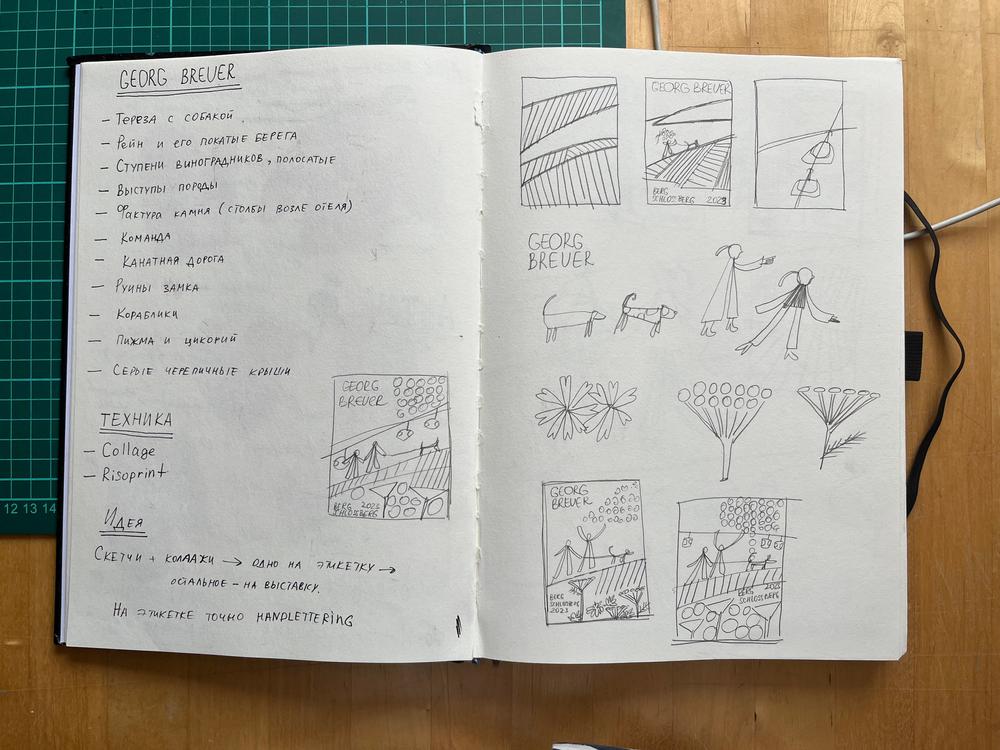 GEORG BREUER
– ТЕРЕЗА С СОБАКОЙ.
– РЕЙН И ЕГО ПОКАТЫЕ БЕРЕГА
– СТУПЕНИ ВИНОГРАДНИКОВ, ПОЛОСАТЫЕ
– ВЫСТУПЫ ПОРОДЫ
– ФАКТУРА КАМНЯ (СТОЛБЫ ВОЗЛЕ ОТЕЛЯ)
– КОМАНДА
– КАНАТНАЯ ДОРОГА
– РУИНЫ ЗАМКА
– КОРАБЛИКИ
– ПИЖМА И ЦИКОНИЙ
– СЕРЫЕ ЧЕРЕПИЧНЫЕ КРЫШИ
ТЕХНИКА
– Collage
– Risoprint
ИДЕЯ
СКЕТЧИ + КОЛЛАЖИ → ОДНО НА ЭТИКЕТКУ →
ОСТАЛЬНОЕ – НА ВЫСТАВКУ.
НА ЭТИКЕТКЕ ТОЧНО HANDLETTERING
GEORG
BREUER
BERG 2023
SCHLOSSBERG
GEORG BREUER
BERG
SCHLOSSBERG 2023
GEORG
BREUER
GEORG
BREUER
BERG
SCHLOSSBERG
2023
BERG 2023
SCHLOSSBERG
12 13 14